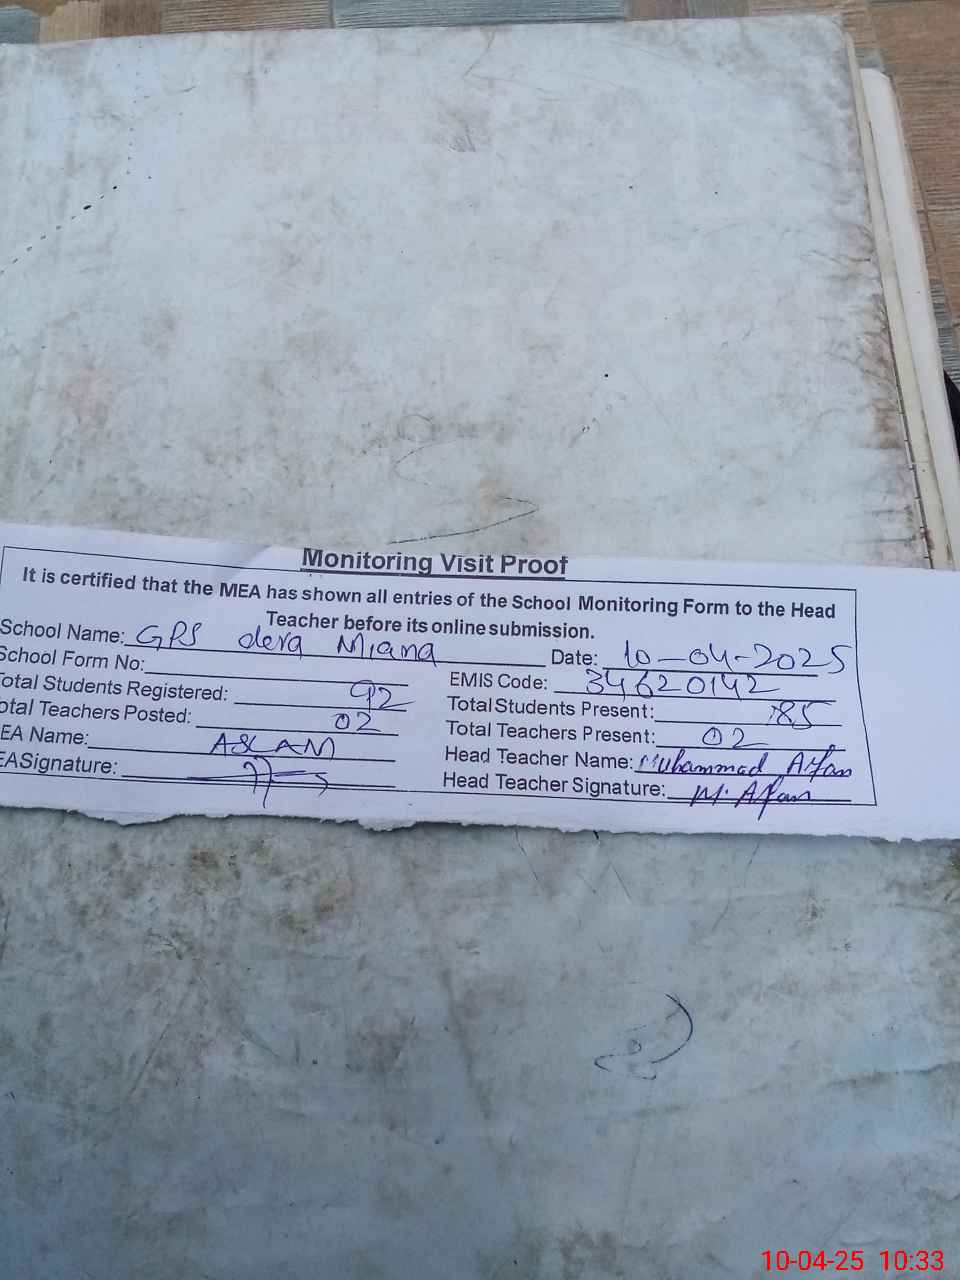 Monitoring Visit Proof
It is certified that the MEA has shown all entries of the School Monitoring Form to the Head
Teacher before its online submission.
School Name: GPS dera Miana Date: 10-04-2025
School Form No: EMIS Code: 34620142
otal Students Registered: 92 Total Students Present: 85
otal Teachers Posted: 02 Total Teachers Present: 02
EA Name: ASLAM Head Teacher Name: Muhammad Affan
EA Signature: Head Teacher Signature: M. Affan
10-04-25 10:33